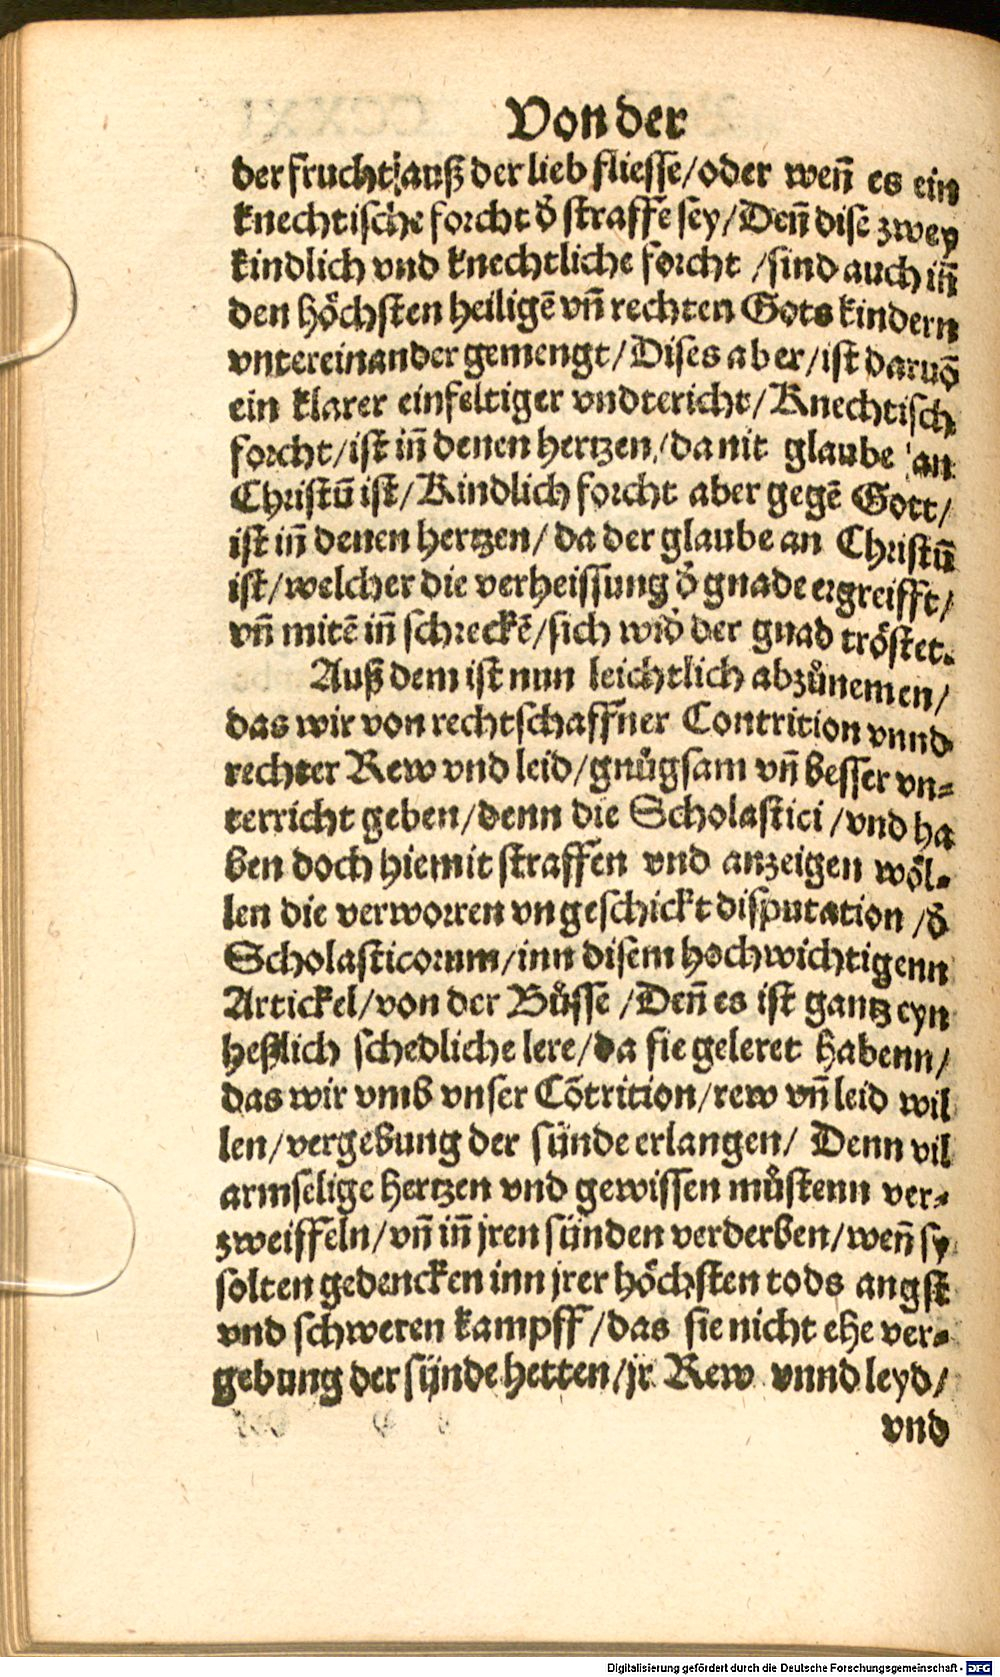 Von der
der frucht auß der lieb fliesse/oder wen̄ es ein
knechtische forcht d̓ straffe sey/Den̄ dise zwey
kindlich vnd knechtliche forcht /sind auch in̄
den höchsten heiligē vn̄ rechten Gots kindern
vntereinander gemengt/Dises aber/ist daruō
ein klarer einfeltiger vndtericht/Knechtisch
forcht/ist in̄ denen hertzen/da nit glaube an
Christū ist/Kindlich forcht aber gegē Gott/
ist in̄ denen hertzen/da der glaube an Christū
ist/welcher die verheissung d̓ gnade ergreifft/
vn̄ mitē in̄ schreckē/sich wid̓ der gnad tröstet.
Auß dem ist nun leichtlich abzůnemen/
das wir von rechtschaffner Contrition vnnd
rechter Rew vnd leid/gnůgsam vn̄ besser vn=
terricht geben/denn die Scholastici/vnd ha
ben doch hiemit straffen vnd anzeigen wöl=
len die verworren vngeschickt disputation /d̓
Scholasticorum/inn disem hochwichtigenn
Artickel/von der Bůsse /Den̄ es ist gantz eyn
heßlich schedliche lere/da sie geleret habenn/
das wir vmb vnser Cōtrition/rew vn̄ leid wil
len/vergebung der sünde erlangen/ Denn vil
armselige hertzen vnd gewissen můstenn ver=
zweiffeln/vn̄ in̄ jren sünden verderben/wen̄ sy
solten gedencken inn jrer höchsten tods angst
vnd schweren kampff/das sie nicht ehe ver=
gebung der sünde hetten/jr Rew vnnd leyd/
vnd
Digitalisierung gefördert durch die Deutsche Forschungsgemeinschaft - DFG